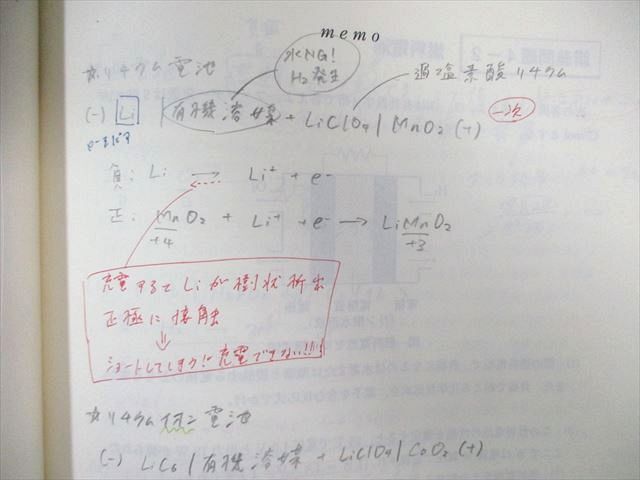 memo
水NG!
H₂発生
☆リチウム電池
過塩素酸リチウム
(-) Li | 有機溶媒 + LiClO₄ | MnO₂ (+)
一次
負: Li → Li⁺ + e⁻
正: MnO₂ + Li⁺ + e⁻ → LiMnO₂
+4 +3
充電するとLiが樹状析出
正極に接触
⇓
ショートしてしまうので充電できない!!!
☆リチウムイオン電池
(-) LiC₆ | 有機溶媒 + LiClO₄ | CoO₂ (+)